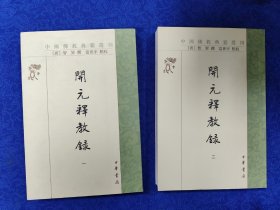 中國佛教典籍選刊
[唐]智昇 撰 富世平 點校
開元釋教錄
一
中華書局
中國佛教典籍選刊
[唐]智昇 撰 富世平 點校
開元釋教錄
二
中華書局